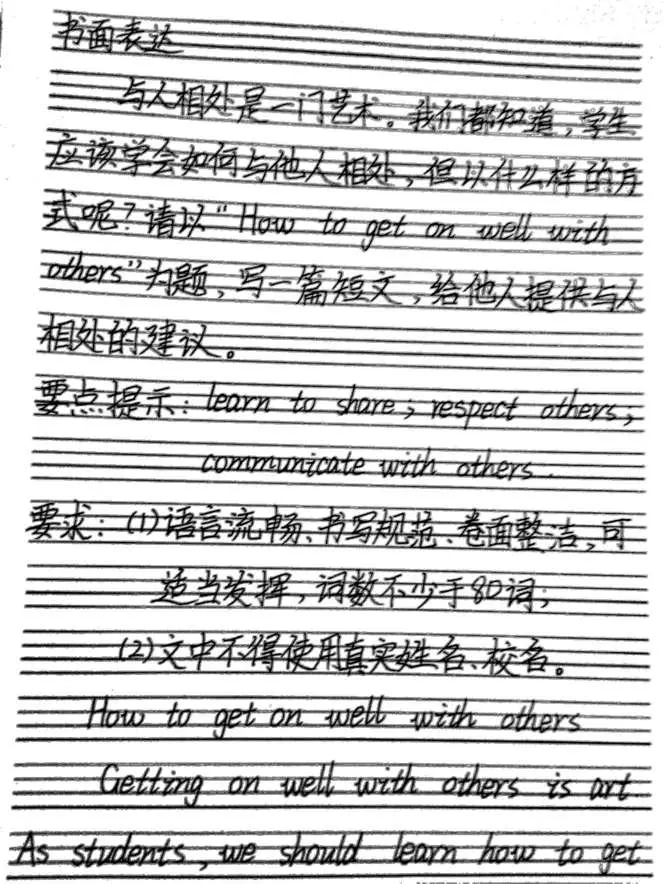 书面表达
与人相处是一门艺术。我们都知道，学生
应该学会如何与他人相处，但以什么样的方
式呢？请以"How to get on well with
others"为题，写一篇短文，给他人提供与人
相处的建议。
要点提示：learn to share; respect others;
communicate with others.
要求：(1)语言流畅、书写规范、卷面整洁，可
适当发挥，词数不少于80词；
(2)文中不得使用真实姓名、校名。
How to get on well with others
Getting on well with others is art.
As students, we should learn how to get